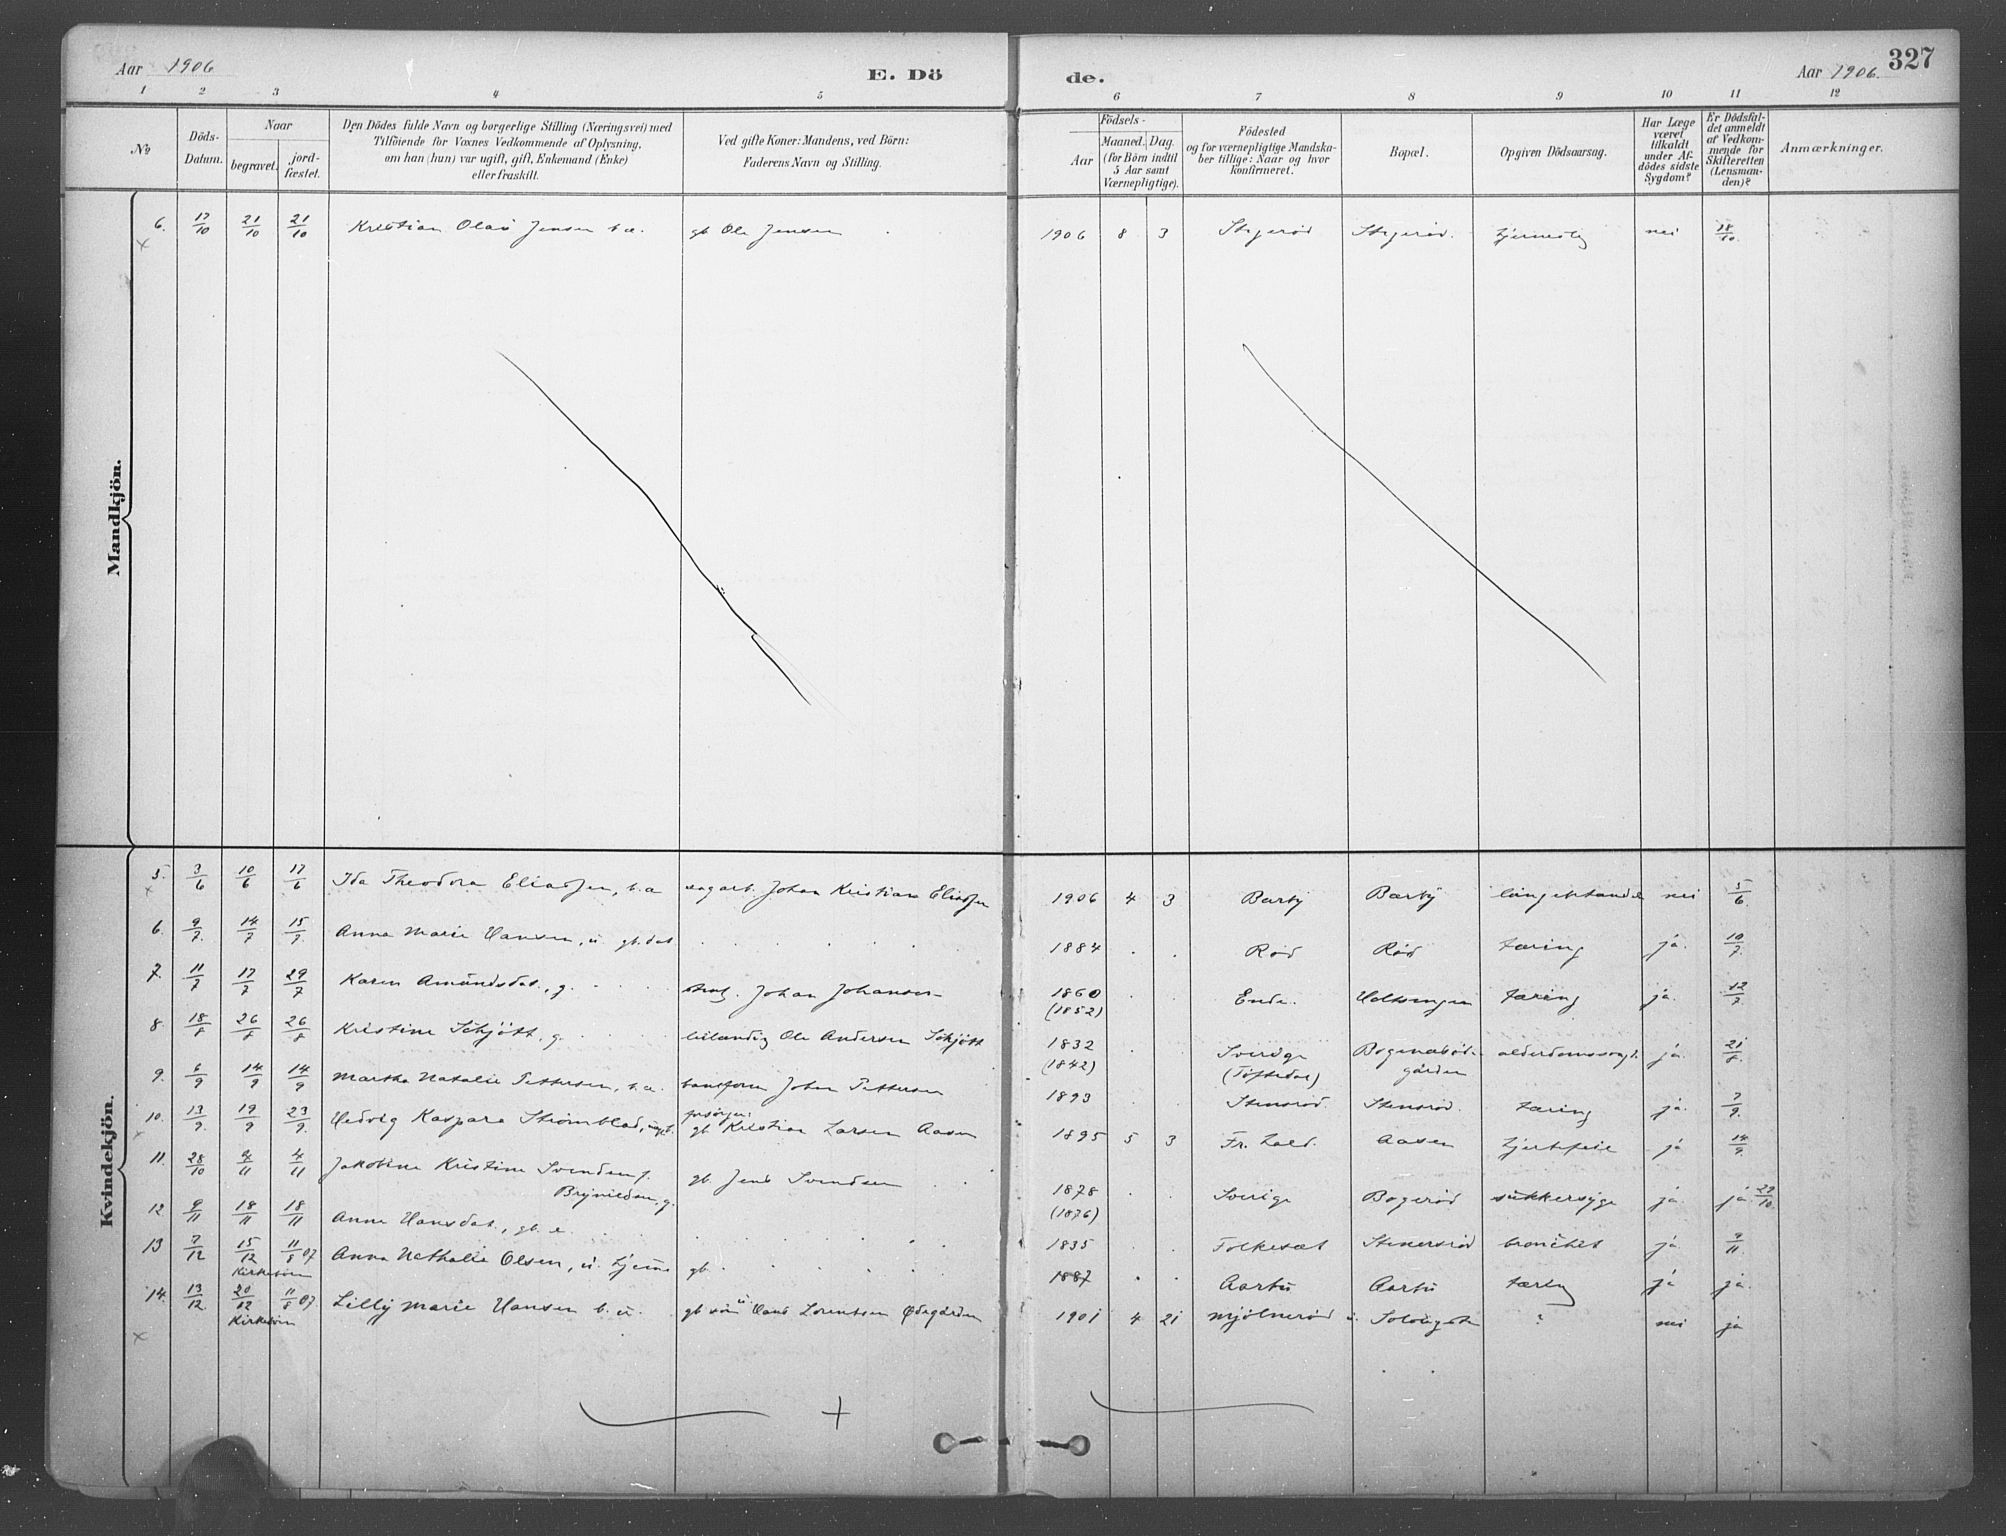 Aar 1906 E. Dö de. Aar 1906. 327
1 2 3 4 5 6 7 8 9 10 11 12
No
Döds-Datum.
Naar
begravet.
jord-fæstet.
Den Dödes fulde Navn og borgerlige Stilling (Næringsvei) med
Tilföiende for Voxnes Vedkommende af Oplysning,
om han (hun) var ugift, gift, Enkemand (Enke)
eller fraskilt.
Ved gifte Koner: Mandens, ved Börn:
Faderens Navn og Stilling.
Födsels-
Aar
Maaned. Dag.
(for Börn indtil
5 Aar samt
Værnepligtige).
Födested
og for værnepligtige Mandska-
ber tillige: Naar og hvor
konfirmeret.
Bopæl.
Opgiven Dödsaarsag.
Har Læge
været
tilkaldt
under Af-
dödes sidste
Sygdom?
Er Dödsfal-
det anmeldt
af Vedkom-
mende for
Skifteretten
(Lensman-
den)?
Anmærkninger.
Mandkjön.
6. 17/10 21/10 21/10 Kristian Olaus Jensen b. æ. gb. Ole Jensen 1906 8 3 nei 18/10.
Kvindekjön.
5. 3/6 10/6 17/6 Ida Theodora Eliassen, b. æ Johan Kristian Eliassen 1906 4 3 Barby Barby nei 5/6.
6. 9/7. 14/7 15/7. Anna Marie Hansen, u. gb. dat. 1884 Rød Rød tæring ja. 10/7.
7. 11/7 17/7 29/7 Karen Amundsdat., g. Johan Johansen 1860 (1852) Ende. tæring ja. 12/7.
8. 18/8 26/8 26/8 Kristine Schjött, g. leilænding Ole Andersen Schjött 1832 (1842) Sverige (Töftedal) gården ja. 21/8.
9. 6/9 14/9 14/9 Martha Natalie Pettersen, b. æ. Johan Pettersen 1893 Stensrød. Stensrød. tæring ja. 7/9.
10. 13/9. 19/9 23/9. Hedvig Kaspara Strömblad, forsörger: gb. Kristian Larsen Aasen 1895 5 3 Fr. hald. Aasen hjertfeil ja 14/9.
11. 28/10 4/11 4/11 Jakobine Kristine Svendsen f. gb. Jens Svendsen 1878 (1876) Sverige Bogerød sukkersyge ja. ja. 29/10.
12. 9/11 18/11 18/11 Anne Hansdat., gb. e. 1835 Folkesæt Stenersrød ja. 9/11.
13 7/12 15/12 11/8 07 Anna Nathalie Olsen, u. gb. 1887 Aarbu Aarbu ja ja.
14. 13/12. 20/12 11/8 07. Lilly Marie Hansen b. u. Hans Lorentsen Ødegården 1901 4 21 Mjölnerød ? nei ja